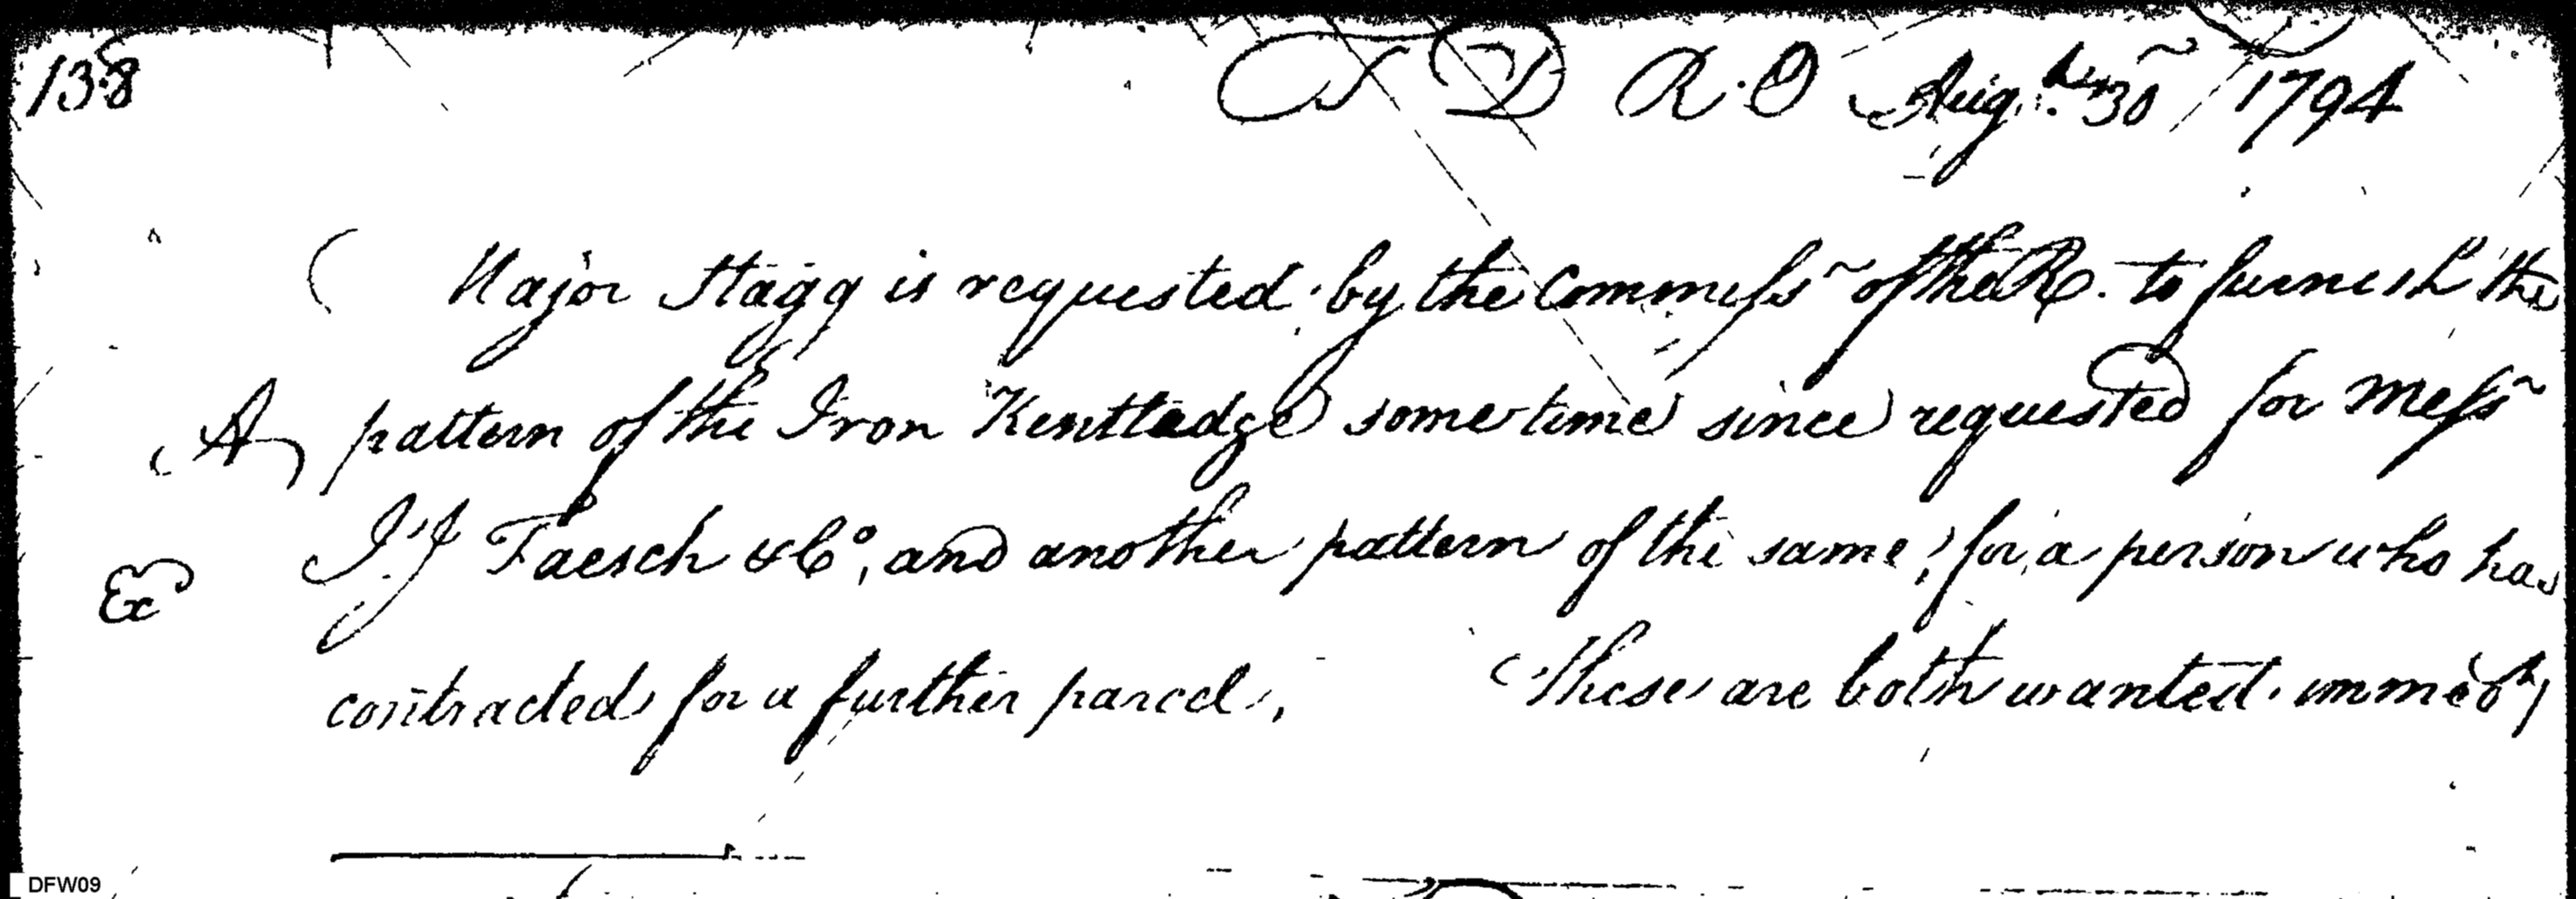 138
T D R.O Augt. 30 1794
Major Stagg is requested by the Commiss of the R. to furnish the
A pattern of the Iron Kentledge some time since requested for Mess
J J Faesch & Co, and another pattern of the same, for a person who has
Ex
contracted for a further parcel, These are both wanted immedy
DFW09